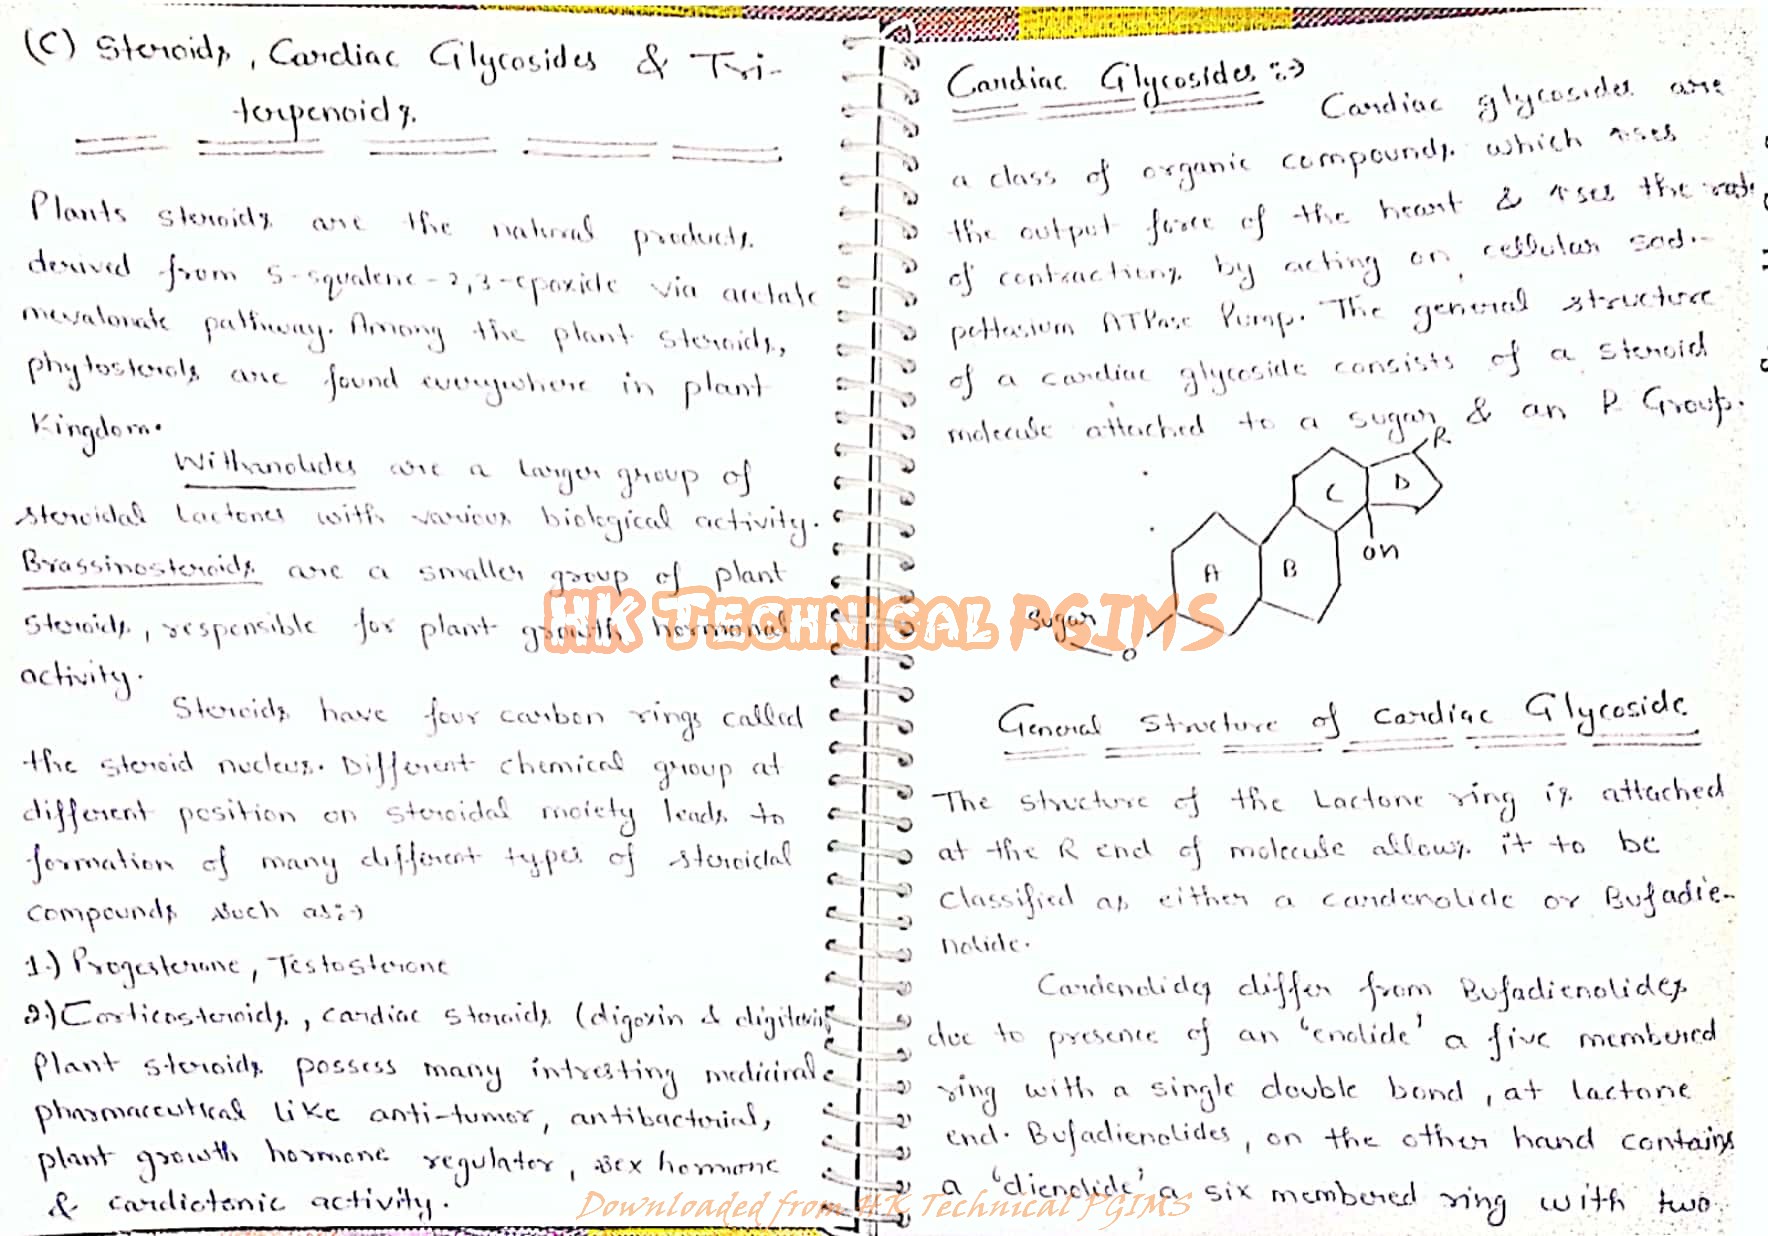 (C) Steroids, Cardiac Glycosides & Tri-
terpenoids.
Plants steroids are the natural products
derived from S-squalene-2,3-epoxide via acetate
mevalonate pathway. Among the plant steroids,
phytosterols are found everywhere in plant
Kingdom.
Withanolides are a larger group of
steroidal lactones with various biological activity.
Brassinosteroids are a smaller group of plant
steroids, responsible for plant growth hormonal
activity.
Steroids have four carbon rings called
the steroid nucleus. Different chemical group at
different position on steroidal moiety leads to
formation of many different types of steroidal
compounds such as:→
1.) Progesterone, Testosterone
2.) Corticosteroids, cardiac steroids (digoxin & digitoxin)
Plant steroids possess many intresting medicinal
pharmaceutical like anti-tumor, antibacterial,
plant growth hormone regulator, sex hormone
& cardiotonic activity.
Cardiac Glycosides :→
Cardiac glycosides are
a class of organic compounds which ↑ses
the output force of the heart & ↑ses the rate
of contractions by acting on cellular sod.-
pottasium ATPase Pump. The general structure
of a cardiac glycoside consists of a steroid
molecule attached to a sugar & an R Group.
R
C D
OH
A B
Sugar
O
General Structure of Cardiac Glycoside
The structure of the Lactone ring is attached
at the R end of molecule allows it to be
classified as either a cardenolide or Bufadie-
nolide.
Cardenolides differ from Bufadienolides
due to presence of an 'enolide' a five membered
ring with a single double bond, at lactone
end. Bufadienolides, on the other hand contains
a 'dienolide' a six membered ring with two
HK Technical PGIMS
Downloaded from HK Technical PGIMS